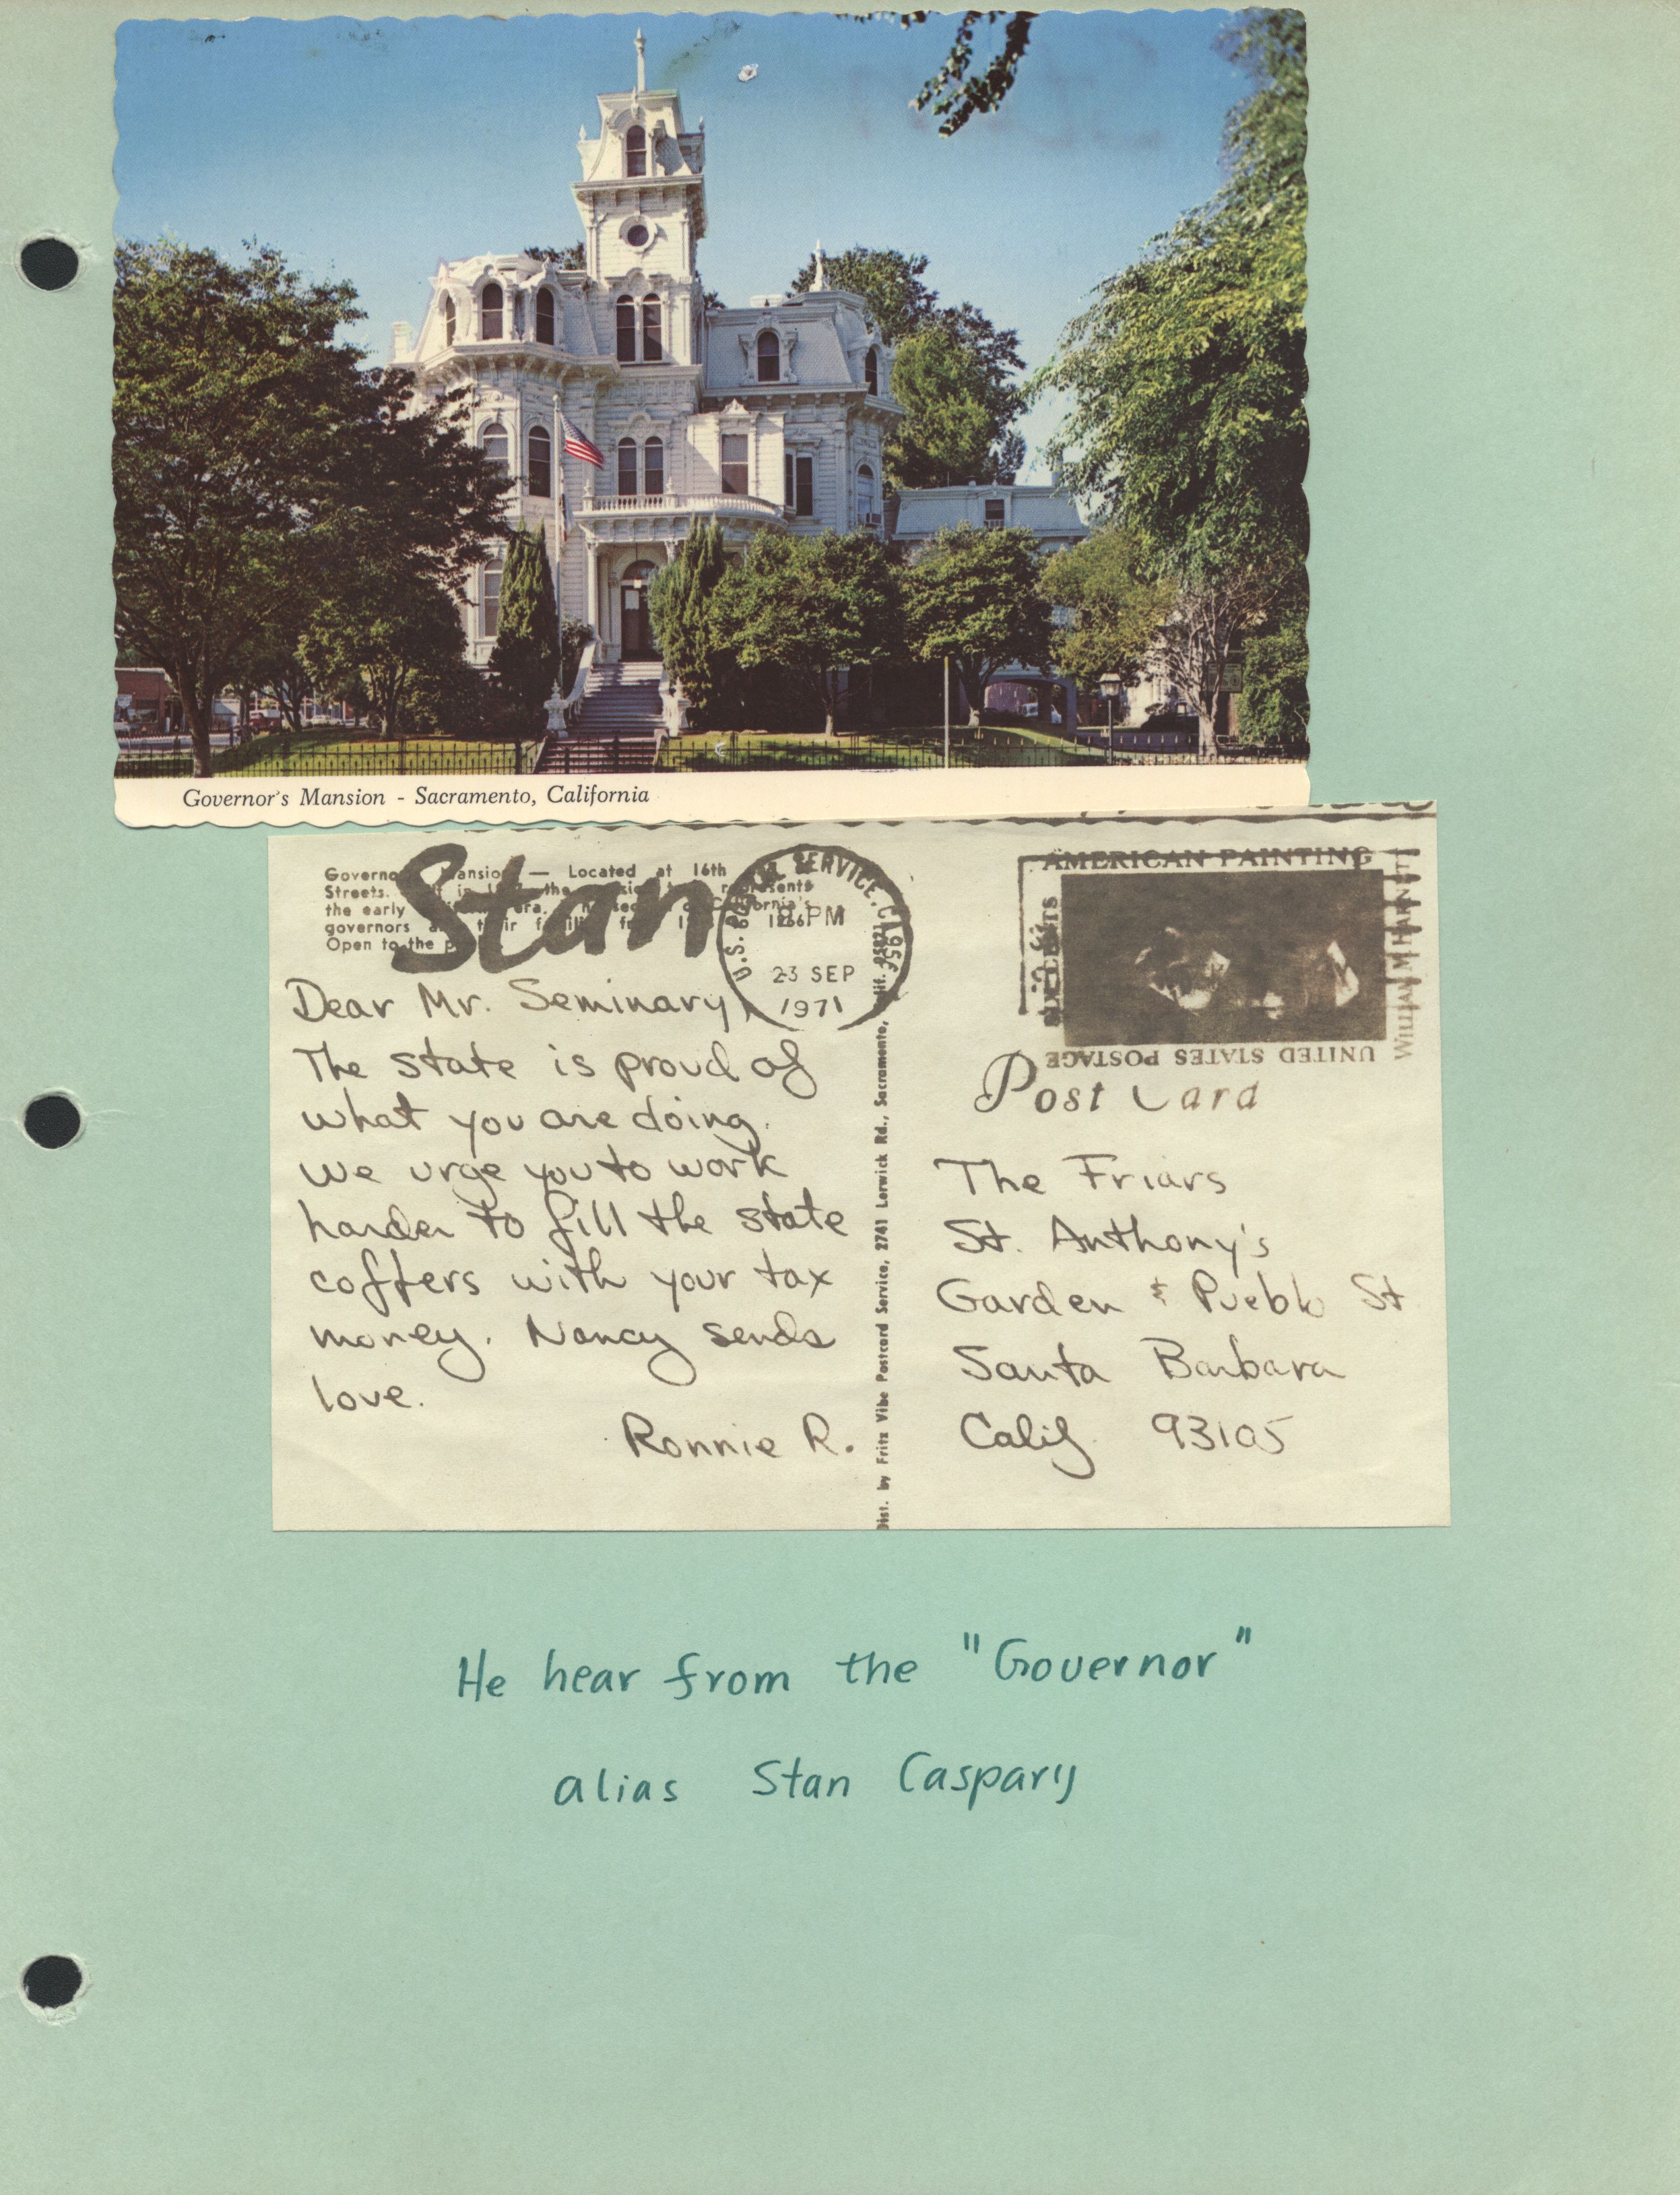 Governor's Mansion - Sacramento, California
Stan
Located at 16th
Streets.
the early era.
governors
Open to the
U.S. SERVICE, CA
PM
23 SEP
1971
AMERICAN PAINTING
WILLIAM M. HARNETT
UNITED STATES POSTAGE
Post Card
Dear Mr. Seminary,
The state is proud of
what you are doing.
We urge you to work
harder to fill the state
coffers with your tax
money. Nancy sends
love.
Ronnie R.
Dist. by Fritz Vibe Postcard Service, 2741 Lerwick Rd., Sacramento, Calif. 95821
The Friars
St. Anthony's
Garden & Pueblo St
Santa Barbara
Calif 93105
He hear from the "Governor"
alias Stan Caspary